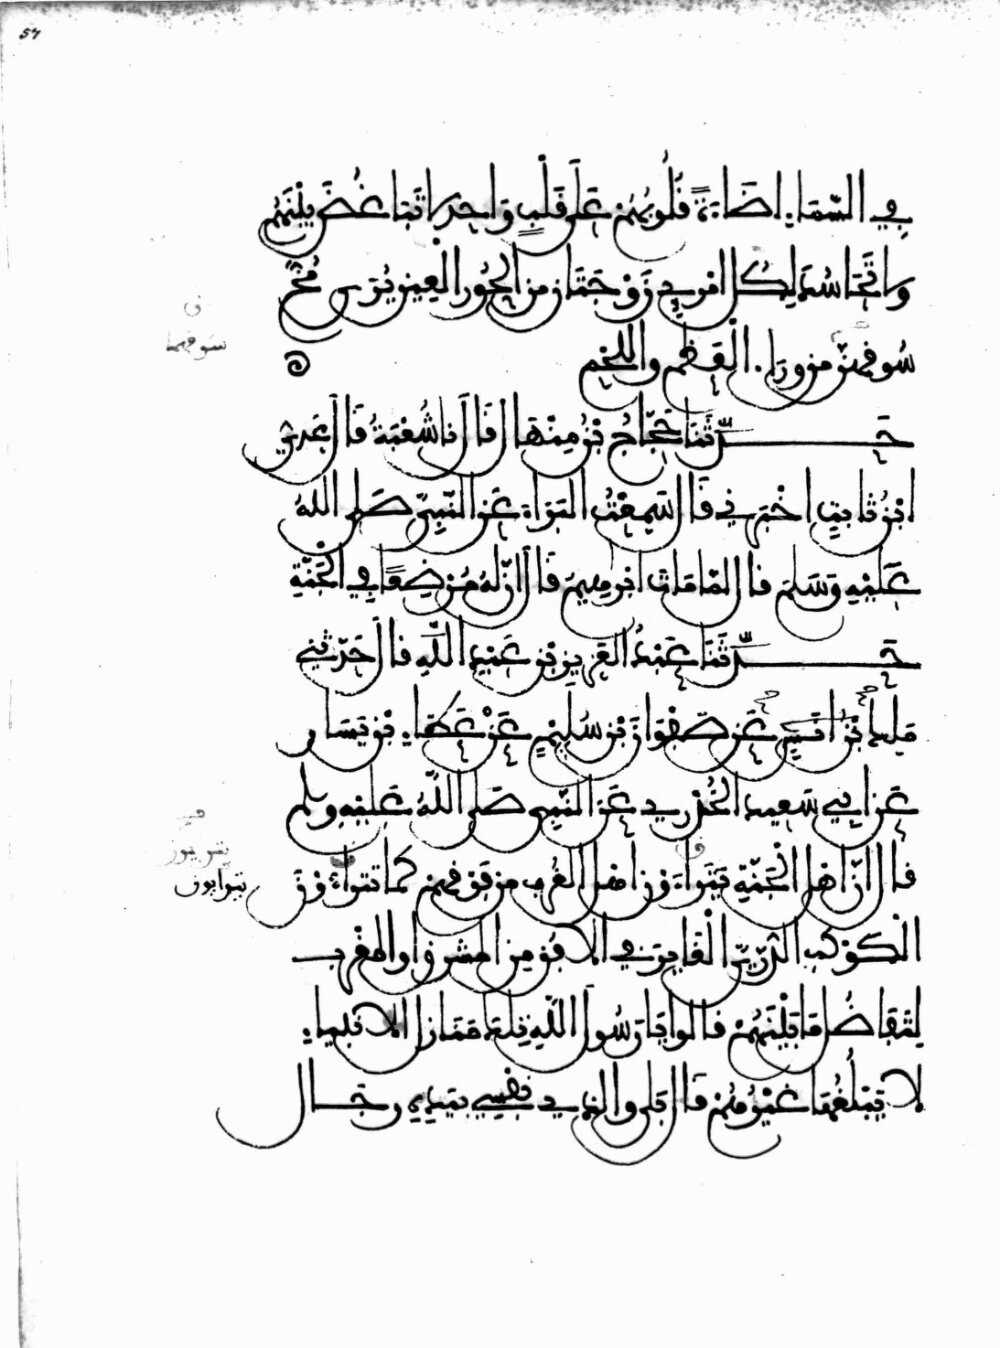 57
في السماء إضاءة قلوبهم على قلب واحد لا تباغض بينهم
ولا تحاسد لكل امرئ زوجتان من الحور العين يرى مخ
سوقهن من وراء العظم واللحم
سوقهما
حدثنا حجاج بن منهال قال نا شعبة قال عدي
ابن ثابت اخبرني قال سمعت البراء عن النبي صلى الله
عليه وسلم قال لما مات ابرهيم قال ان له مرضعا في الجنة
حدثنا عبد العزيز بن عبد الله قال حدثني
ملك بن انس عن صفوان بن سليم عن عطاء بن يسار
عن ابي سعيد الخدري عن النبي صلى الله عليه وسلم
قال ان اهل الجنة يتراءون اهل الغرف من فوقهم كما تتراءون
يتراءيون
الكوكب الدري الغابر في الافق من المشرق او المغرب
لتفاضل ما بينهم قالوا يا رسول الله تلك منازل الانبياء
لا يبلغها غيرهم قال بلى والذي نفسي بيده رجال